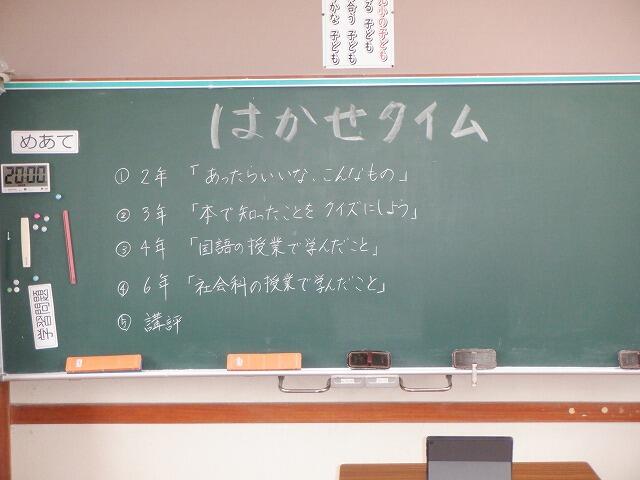 小の子ども
る子ども
合う子ども
かな子ども
はかせタイム
めあて
20:00
① 2年 「あったらいいな、こんなもの」
② 3年 「本で知ったことを クイズにしよう」
③ 4年 「国語の授業で学んだこと」
④ 6年 「社会科の授業で学んだこと」
⑤ 講評
学習問題